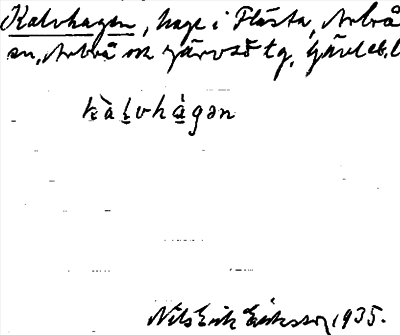 Kalvhagen, hage i Flästa, Arbrå
sn, Arbrå och Järvsö tg, Gävleb. l
kàlvhágən
Nils Erik Eriksson 1935.